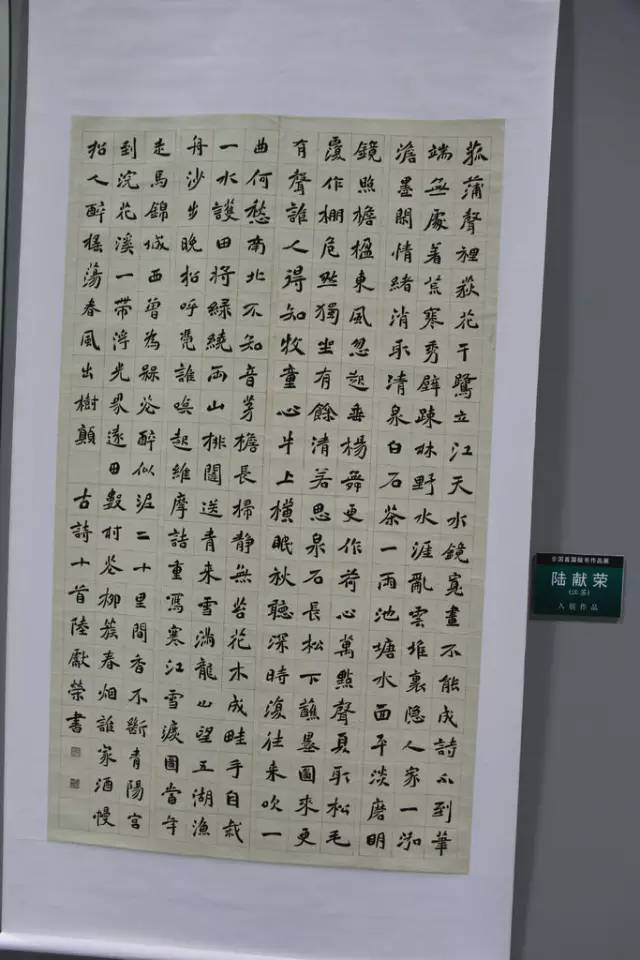 菰蒲聲裡荻花干鷺立江天水鏡寬畫不能成詩不到筆
端無處著荒寒秀壁疎林野水涯亂雲堆裏隐人家一泓
澹墨閑情緒消取清泉白石茶一雨池塘水面平淡磨明
鏡照檐楹東風忽起垂楊舞更作荷心萬點聲夏取松毛
覆作棚危然獨坐有餘清若思泉石長松下蘸墨圖來更
有聲誰人得知牧童心牛上橫眠秋聽深時復往來吹一
曲何愁南北不知音茅檐長掃靜無苔花木成畦手自栽
一水護田將綠繞兩山排闥送青來雪滿龍山望五湖漁
舟沙步晚招呼覺誰喚起維摩詰重寫寒江雪圖當年
走馬錦城西曾為槑花醉似泥二十里間香不斷青陽宮
到浣花溪一帶浮光界遠田數村花柳簇春烟誰家酒幔
招人醉摇蕩春風出樹顛 古詩十首陸獻榮書
全国首届楷书作品展
陆献荣
(江苏)
入展作品